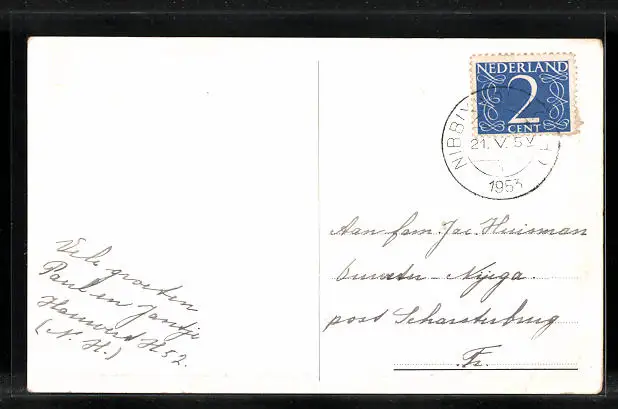 NEDERLAND
2
CENT
NIBBI
21. V. 5
1953
Aan fam. Jac. Huisman
Nijega
post Scharsterbrug
Fr.
Vele groeten
Paul en Jantje
Hauwert H52.
(N. H.)